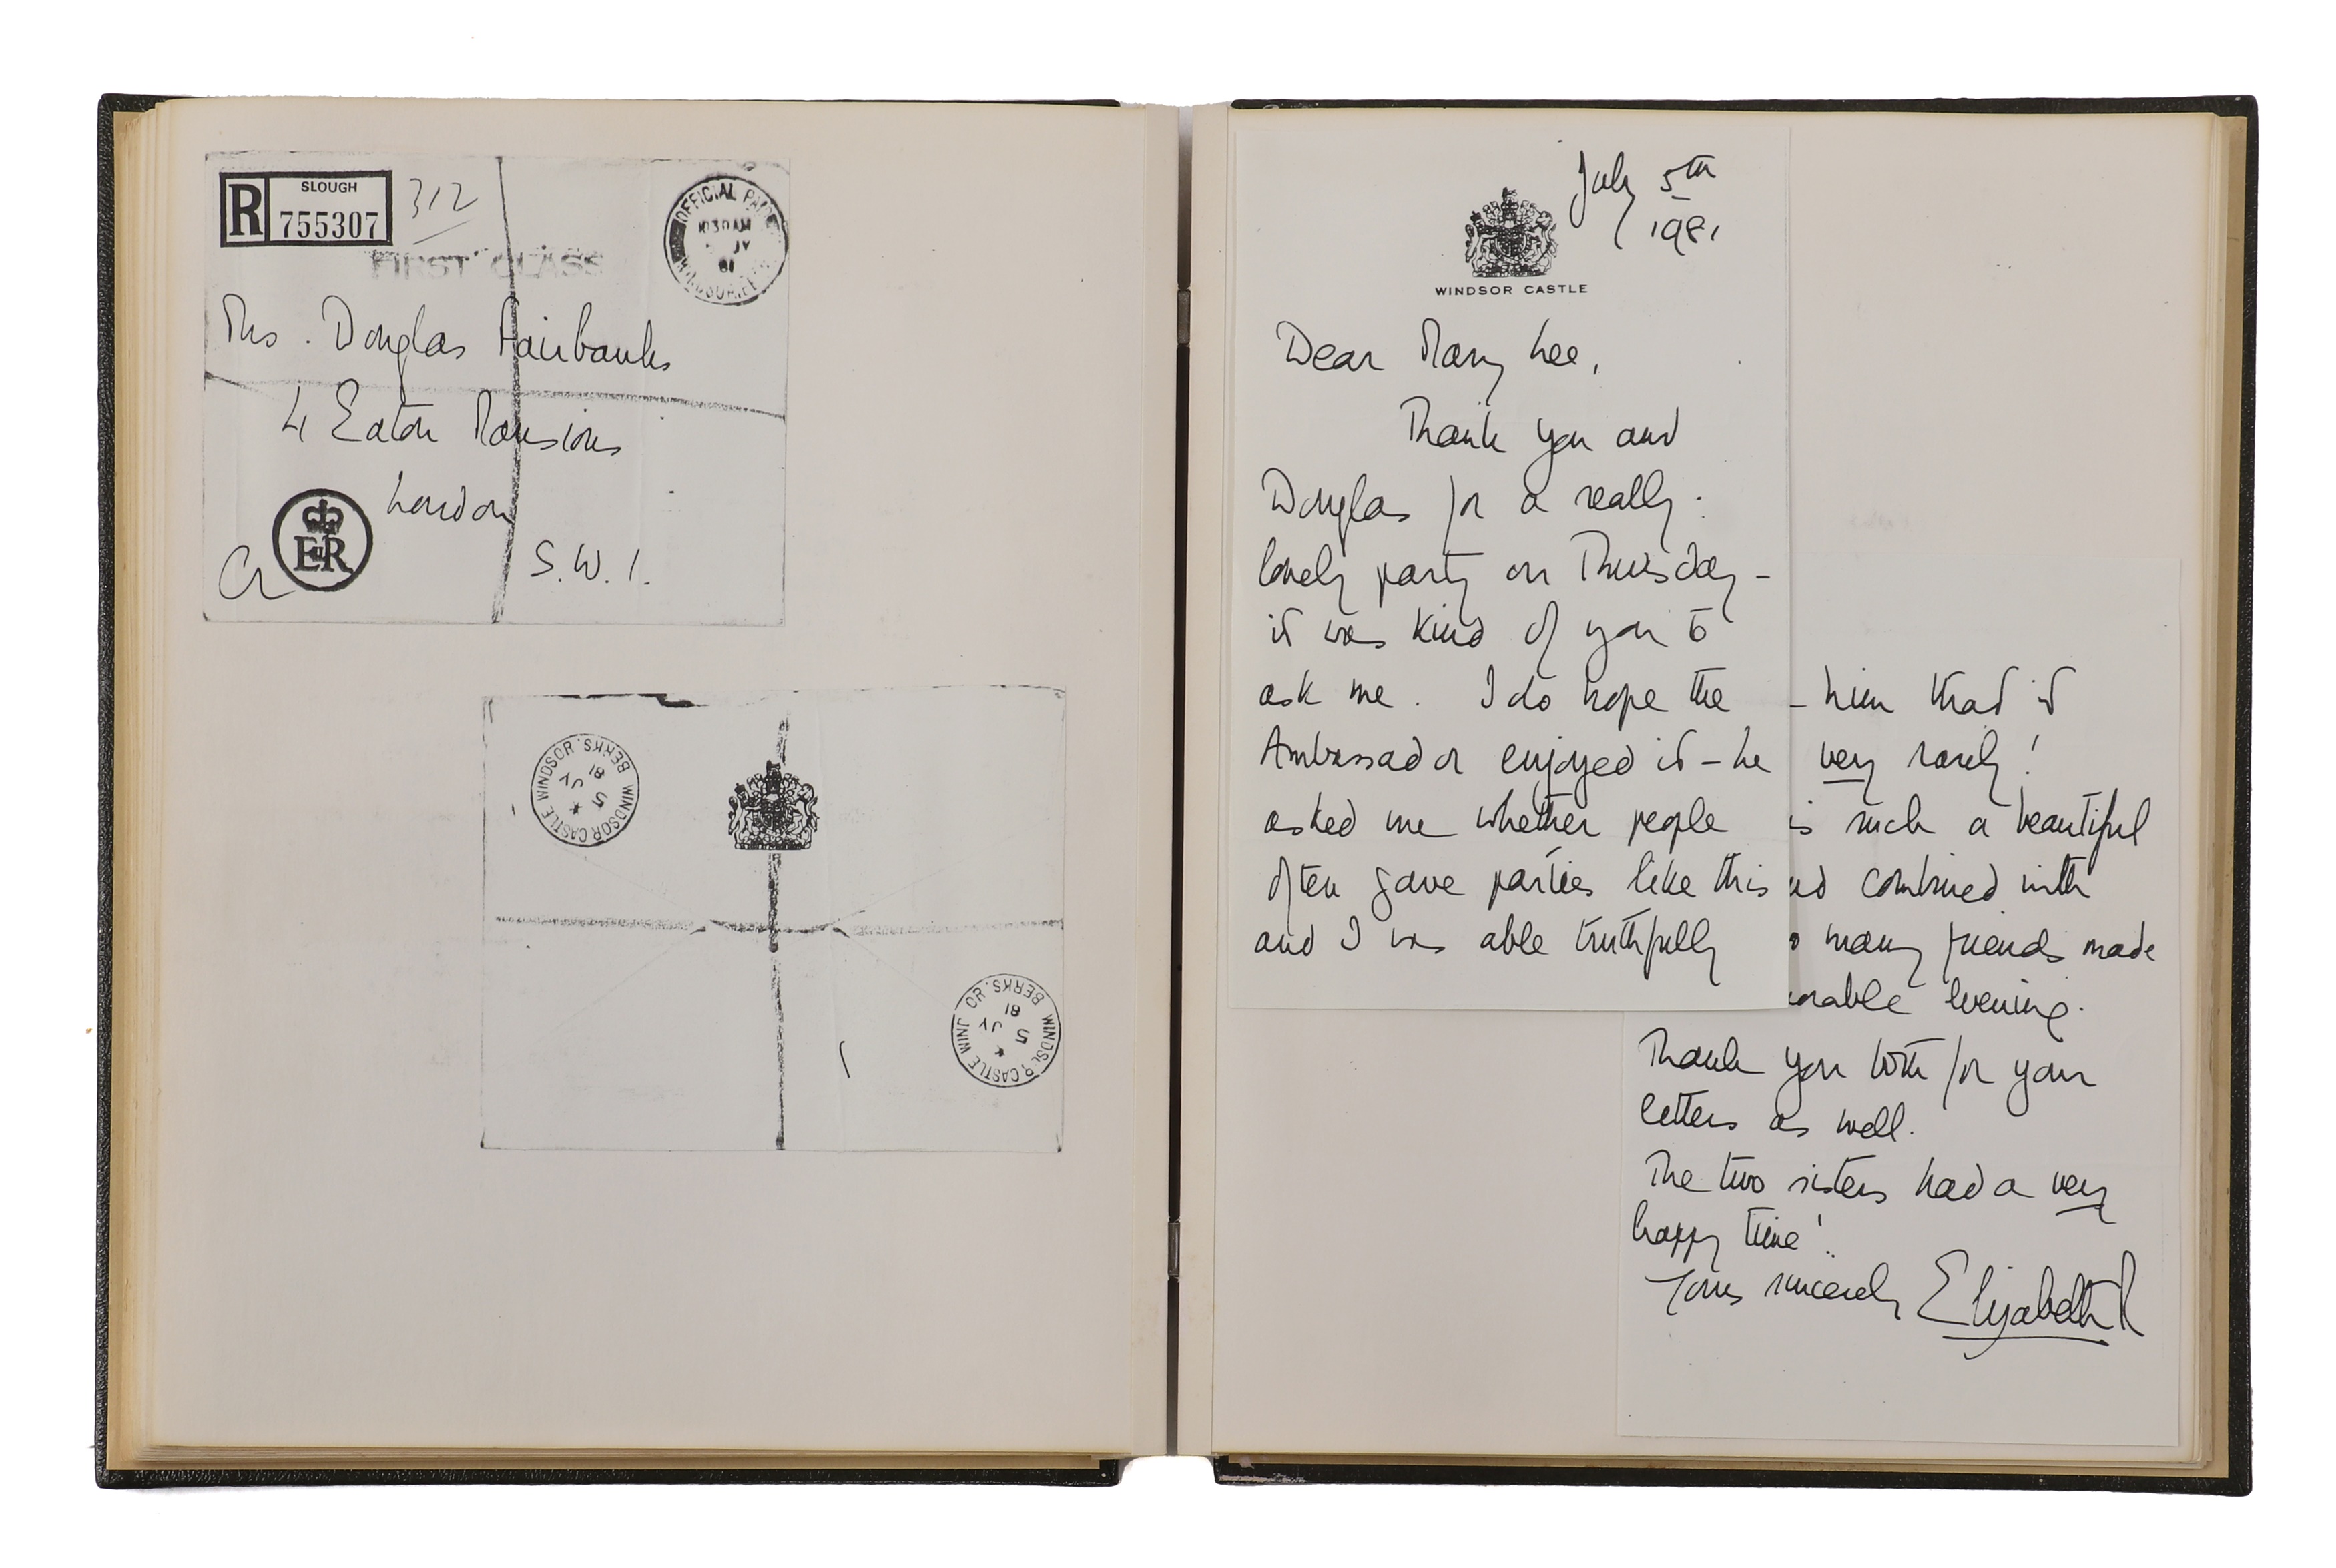 R
SLOUGH
755307
312
FIRST CLASS
OFFICIAL PAID
10 30 AM
JY
81
Mrs. Douglas Fairbanks
4 Eaton Mansions
London
S.W.1.
EIIR
WINDSOR CASTLE WINDSOR. BERKS.
5 JY
81
WINDSOR CASTLE WINDSOR. BERKS.
5 JY
81
July 5th
1981
WINDSOR CASTLE
Dear Mary Lee,
Thank you and
Douglas for a really
lovely party on Thursday -
it was kind of you to
ask me. I do hope the
Ambassador enjoyed it - he
asked me whether people
often gave parties like this
and I was able truthfully
him that it
very rarely!
is such a beautiful
combined with
many friends made
evening.
Thank you both for your
letters as well.
The two sisters had a very
happy time!
Yours sincerely Elizabeth R